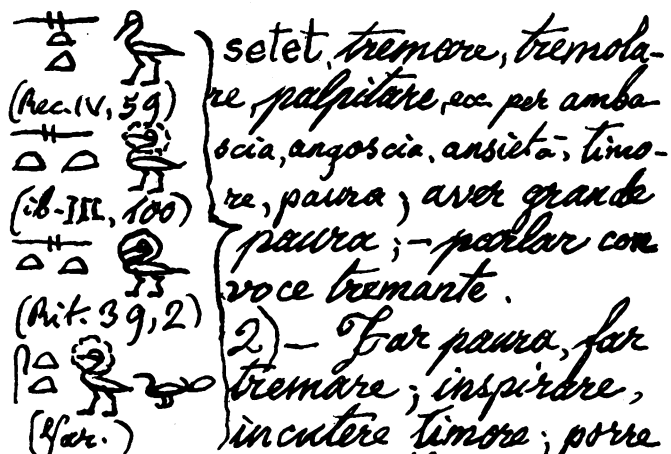 (Rec. IV, 59)
(ib-III, 100)
(Rit. 39, 2)
setet, tremare, tremola-
re, palpitare, ecc per amba
scia, angoscia, ansietà, timo-
re, paura; aver grande
paura; - parlar con
voce tremante.
2) - Far paura, far
tremare; inspirare,
incutere timore; porre